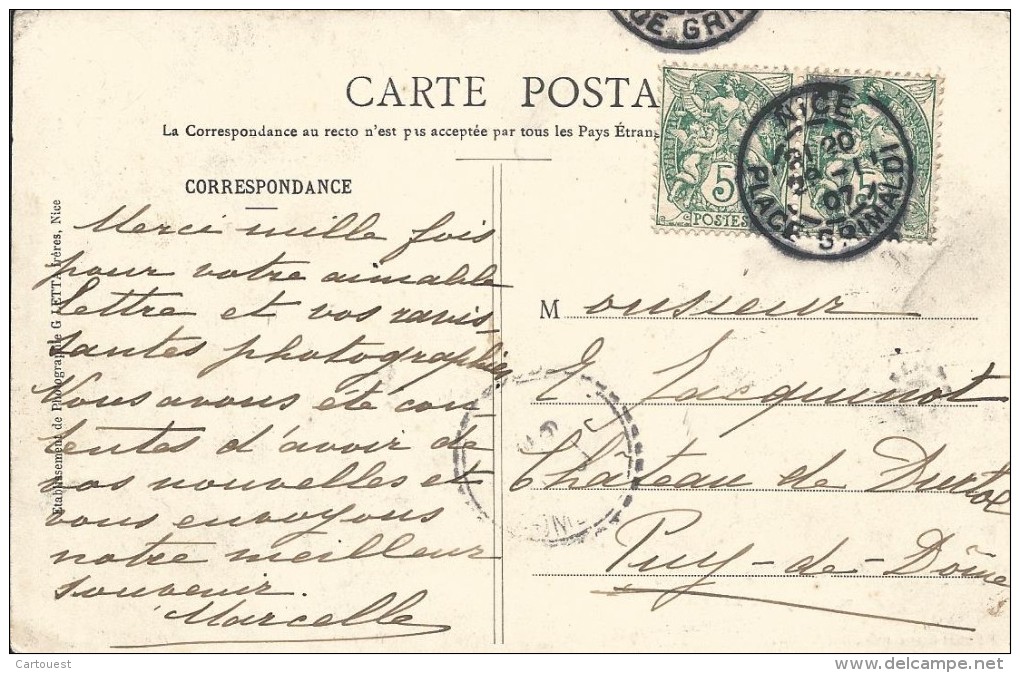 UE GRIM
CARTE POSTA
La Correspondance au recto n'est pas acceptée par tous les Pays Étrang
CORRESPONDANCE
5
POSTES
5
NICE
20
07
PLACE GRIMALDI
Merci mille fois
pour votre aimable
lettre et vos ravis-
santes photographies
Nous avons été con-
tentes d'avoir de
vos nouvelles et
vous envoyons
notre meilleur
souvenir.
Marcelle
Monsieur
E Jacquinot
Château de Durtol
Puy-de-Dôme
Etablissement de Photographie GILETTA frères, Nice
Cartouest
www.delcampe.net